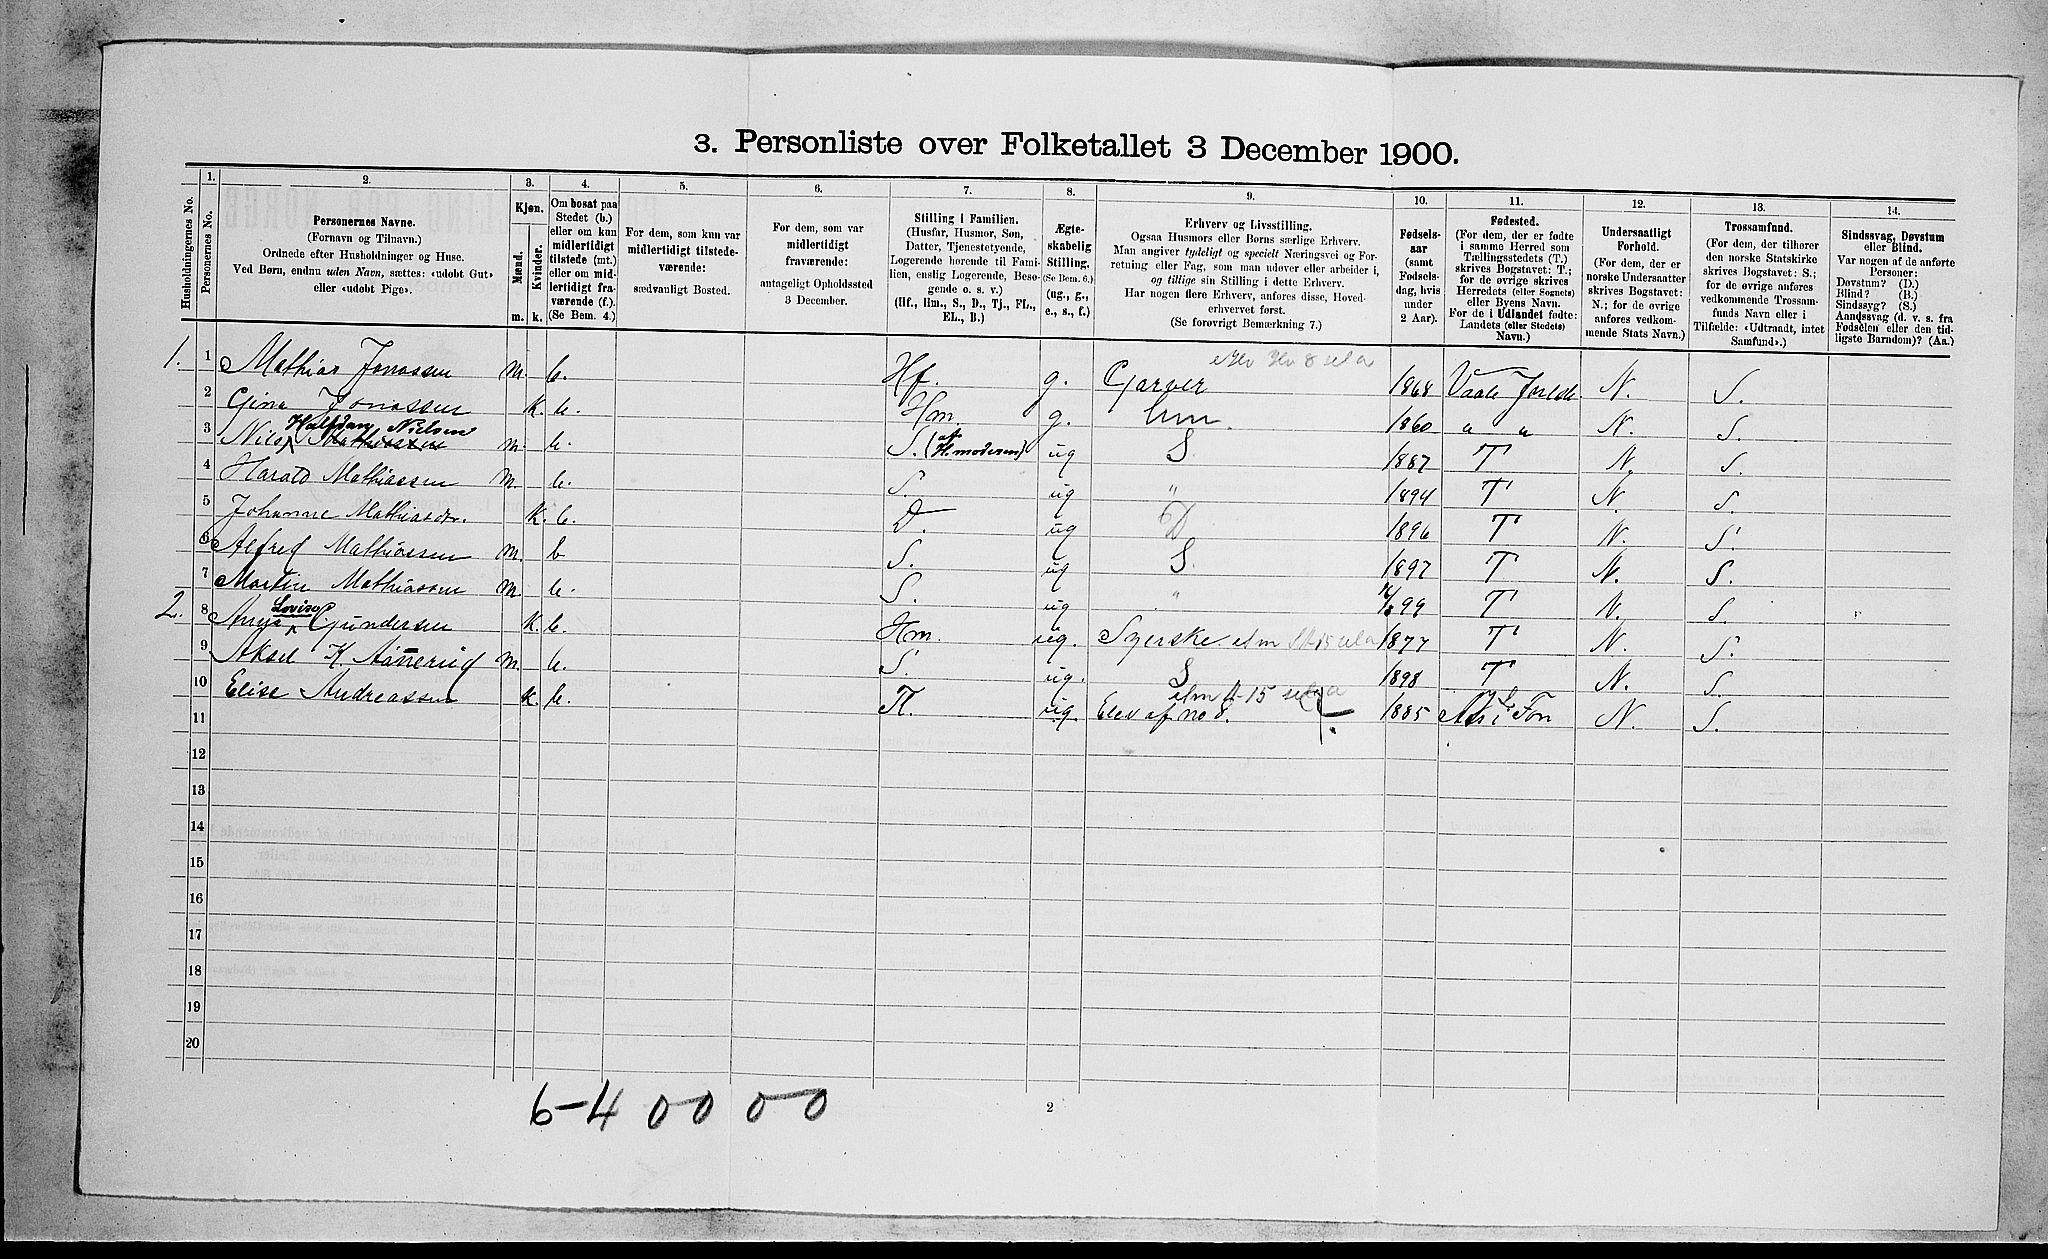 3. Personliste over Folketallet 3 December 1900.
1. 2. 3. 4. 5. 6. 7. 8. 9. 10. 11. 12. 13. 14.
Husholdningernes No.
Personernes No.
Personernes Navne.
(Fornavn og Tilnavn.)
Ordnede efter Husholdninger og Huse.
Ved Børn, endnu uden Navn, sættes: «udøbt Gut»
eller «udøbt Pige».
Kjøn.
Mænd.
Kvinder.
m. k.
Om bosat paa
Stedet (b.)
eller om kun
midlertidigt
tilstede (mt.)
eller om mid-
lertidigt fra-
værende (f.).
(Se Bem. 4.)
For dem, som kun var
midlertidigt tilstede-
værende:
sædvanligt Bosted.
For dem, som var
midlertidigt
fraværende:
antageligt Opholdssted
3 December.
Stilling i Familien.
(Husfar, Husmor, Søn,
Datter, Tjenestetyende,
Logerende hørende til Fami-
lien, enslig Logerende, Besø-
gende o. s. v.)
(Hf., Hm., S., D., Tj., FL.,
EL., B.)
Ægte-
skabelig
Stilling.
(Se Bem. 6.)
(ug., g.,
e., s., f.)
Erhverv og Livsstilling.
Ogsaa Husmors eller Børns særlige Erhverv.
Man angiver tydeligt og specielt Næringsvei og For-
retning eller Fag, som man udøver eller arbeider i,
og tillige sin Stilling i dette Erhverv.
Har nogen flere Erhverv, anføres disse, Hoved-
erhvervet først.
(Se forøvrigt Bemærkning 7.)
Fødsels-
aar
(samt
Fødsels-
dag, hvis
under
2 Aar).
Fødested.
(For dem, der er fødte
i samme Herred som
Tællingsstedets (T.)
skrives Bogstavet: T.;
for de øvrige skrives
Herredets (eller Sognets)
eller Byens Navn.
For de i Udlandet fødte:
Landets (eller Stedets)
Navn.)
Undersaatligt
Forhold.
(For dem, der er
norske Undersaatter
skrives Bogstavet:
N.; for de øvrige
anføres vedkom-
mende Stats Navn.)
Trossamfund.
(For dem, der tilhører
den norske Statskirke
skrives Bogstavet: S.;
for de øvrige anføres
vedkommende Trossam-
funds Navn eller i
Tilfælde: «Udtraadt, intet
Samfund».)
Sindssvag, Døvstum
eller Blind.
Var nogen af de anførte
Personer:
Døvstum? (D.)
Blind? (B.)
Sindssyg? (S.)
Aandssvag (d. v. s. fra
Fødselen eller den tid-
ligste Barndom)? (Aa.)
1. 1 Mathias Jonassen m. b. Hf. g. Garver 1868 Vaale Jrlsb. N. S.
2 Gina Jonassen k. b. Hm. g. 1860 " " N. S.
3 Nils Halfdan Nielsen m. b. S. (af H.moderen) ug S 1887 T N. S.
4 Harald Mathiassen m. b. S. ug " 1894 T N. S.
5 Johanne Mathiasdr. k. b. D. ug D 1896 T N. S.
6 Alfred Mathiassen m. b S. ug S. 1897 T N. S.
7 Martin Mathiassen m. b. S. ug " 99 T N. S.
2. 8 Anna Lovise Gundersen k. b. Hm. ug. Syerske 1877 T N. S.
9 Aksel K. Aannerud m. b. S. ug. S 1898 T N. S.
10 Elise Andreassen k. b. Fl. ug. Elev af no 8. 1885 N. S.
11
12
13
14
15
16
17
18
19
20
6-4 0 0 0 0
2